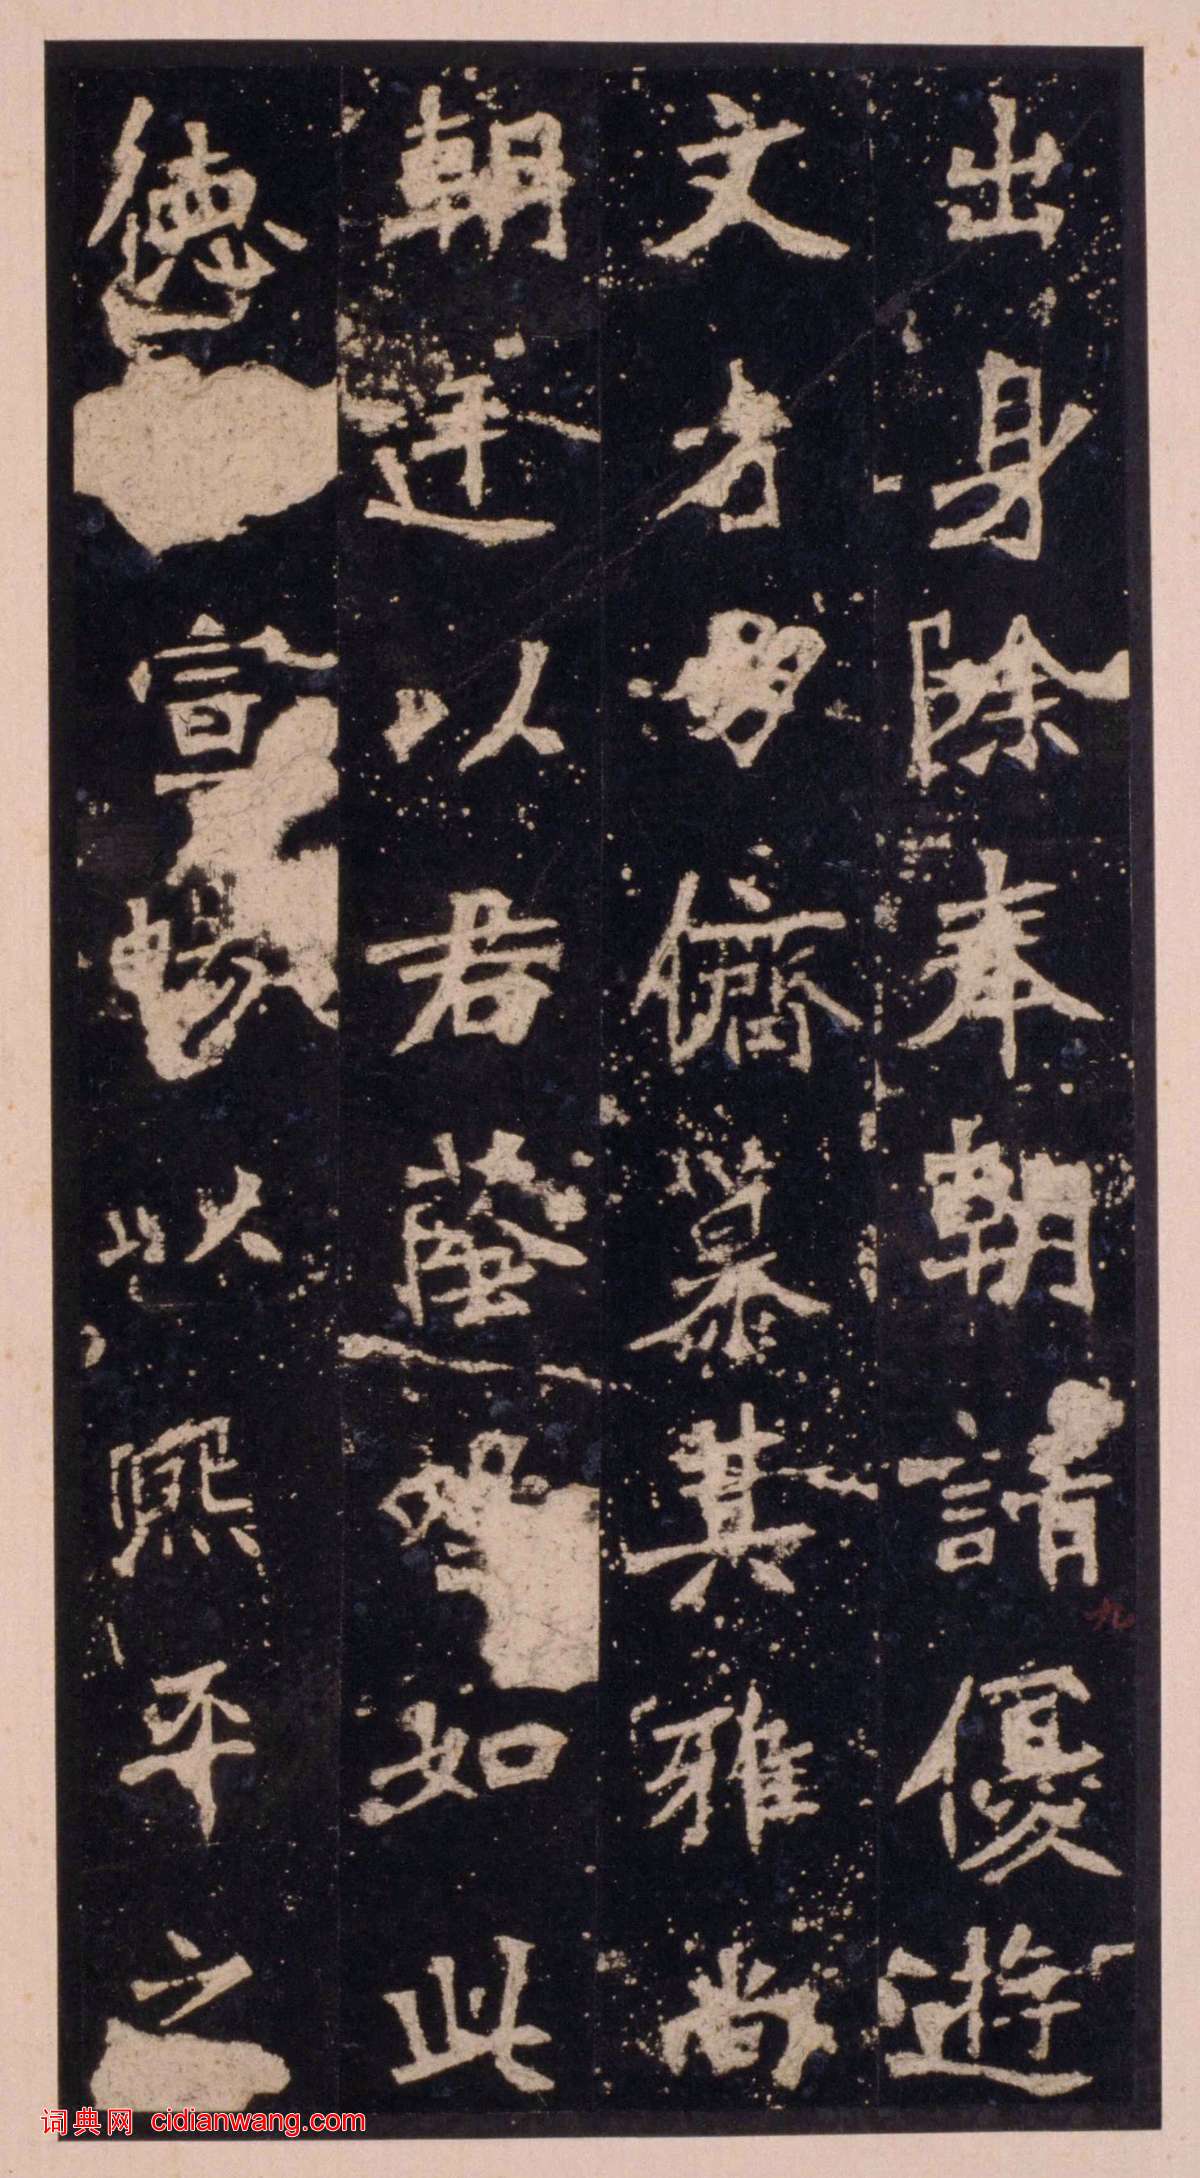 出身除奉朝請優遊
文才朋儕慕其雅尚
朝廷以君蔭望如此
德宣暢以熙平之
词典网 cidianwang.com